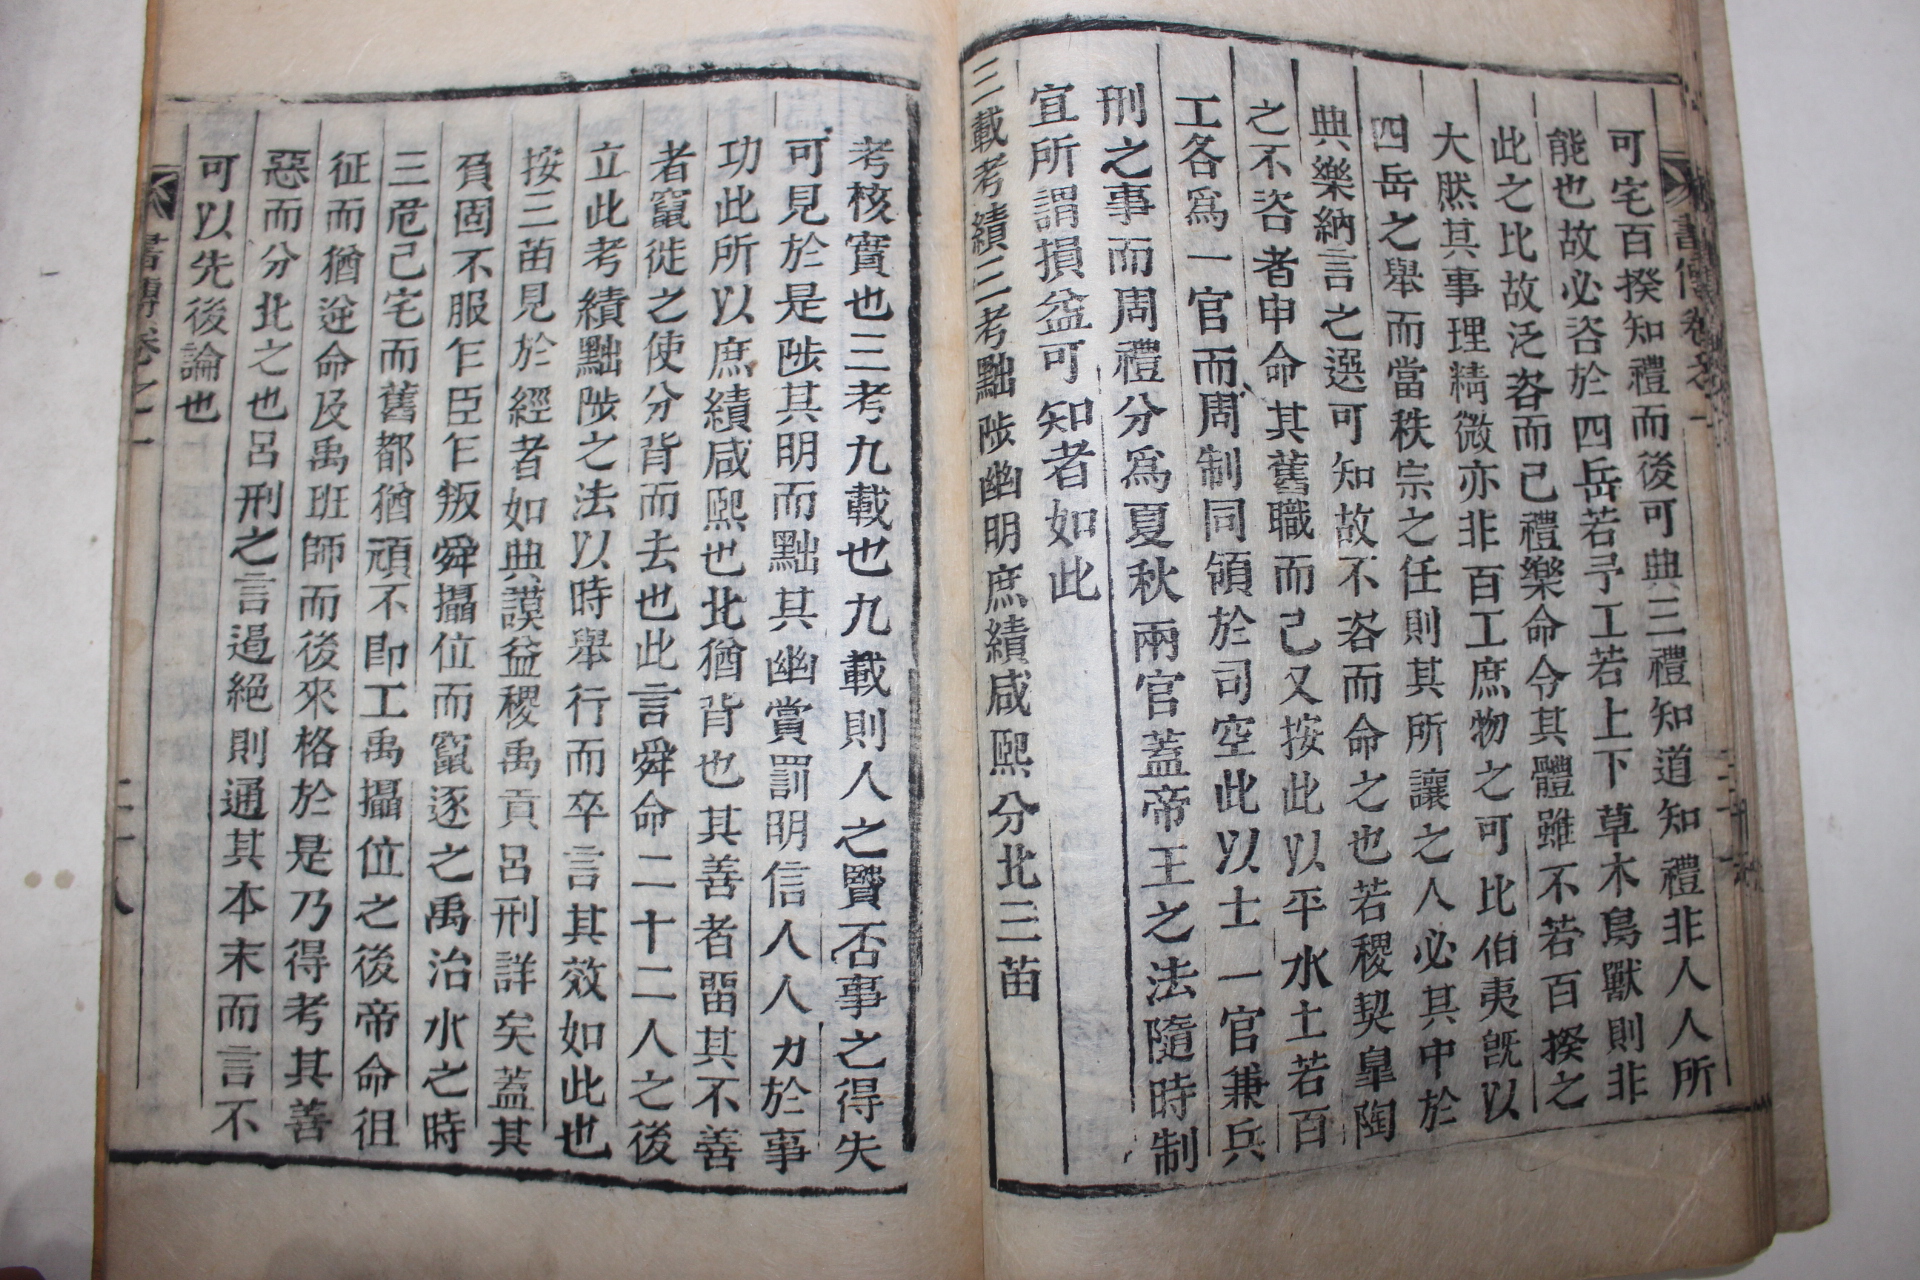 可宅百揆知禮而後可典三禮知道知禮非人人所
能也故必咨於四岳若予工若上下草木鳥獸則非
此之比故泛咨而已禮樂命令其體雖不若百揆之
大然其事理精微亦非百工庶物之可比伯夷旣以
四岳之舉而當秩宗之任則其所讓之人必其中於
典樂納言之選可知故不咨而命之也若稷契皐陶
之不咨者申命其舊職而已又按此以平水土若百
工各爲一官而周制同領於司空此以士一官兼兵
刑之事而周禮分爲夏秋兩官蓋帝王之法隨時制
宜所謂損益可知者如此
三載考績三考黜陟幽明庶績咸熙分北三苗
考核實也三考九載也九載則人之賢否事之得失
可見於是陟其明而黜其幽賞罰明信人人力於事
功此所以庶績咸熙也北猶背也其善者留其不善
者竄徙之使分背而去也此言舜命二十二人之後
立此考績黜陟之法以時舉行而卒言其效如此也
按三苗見於經者如典謨益稷禹貢呂刑詳矣蓋其
負固不服乍臣乍叛舜攝位而竄逐之禹治水之時
三危已宅而舊都猶頑不卽工禹攝位之後帝命徂
征而猶逆命及禹班師而後來格於是乃得考其善
惡而分北之也呂刑之言遏絕則通其本末而言不
可以先後論也
書傳卷之一
二十八